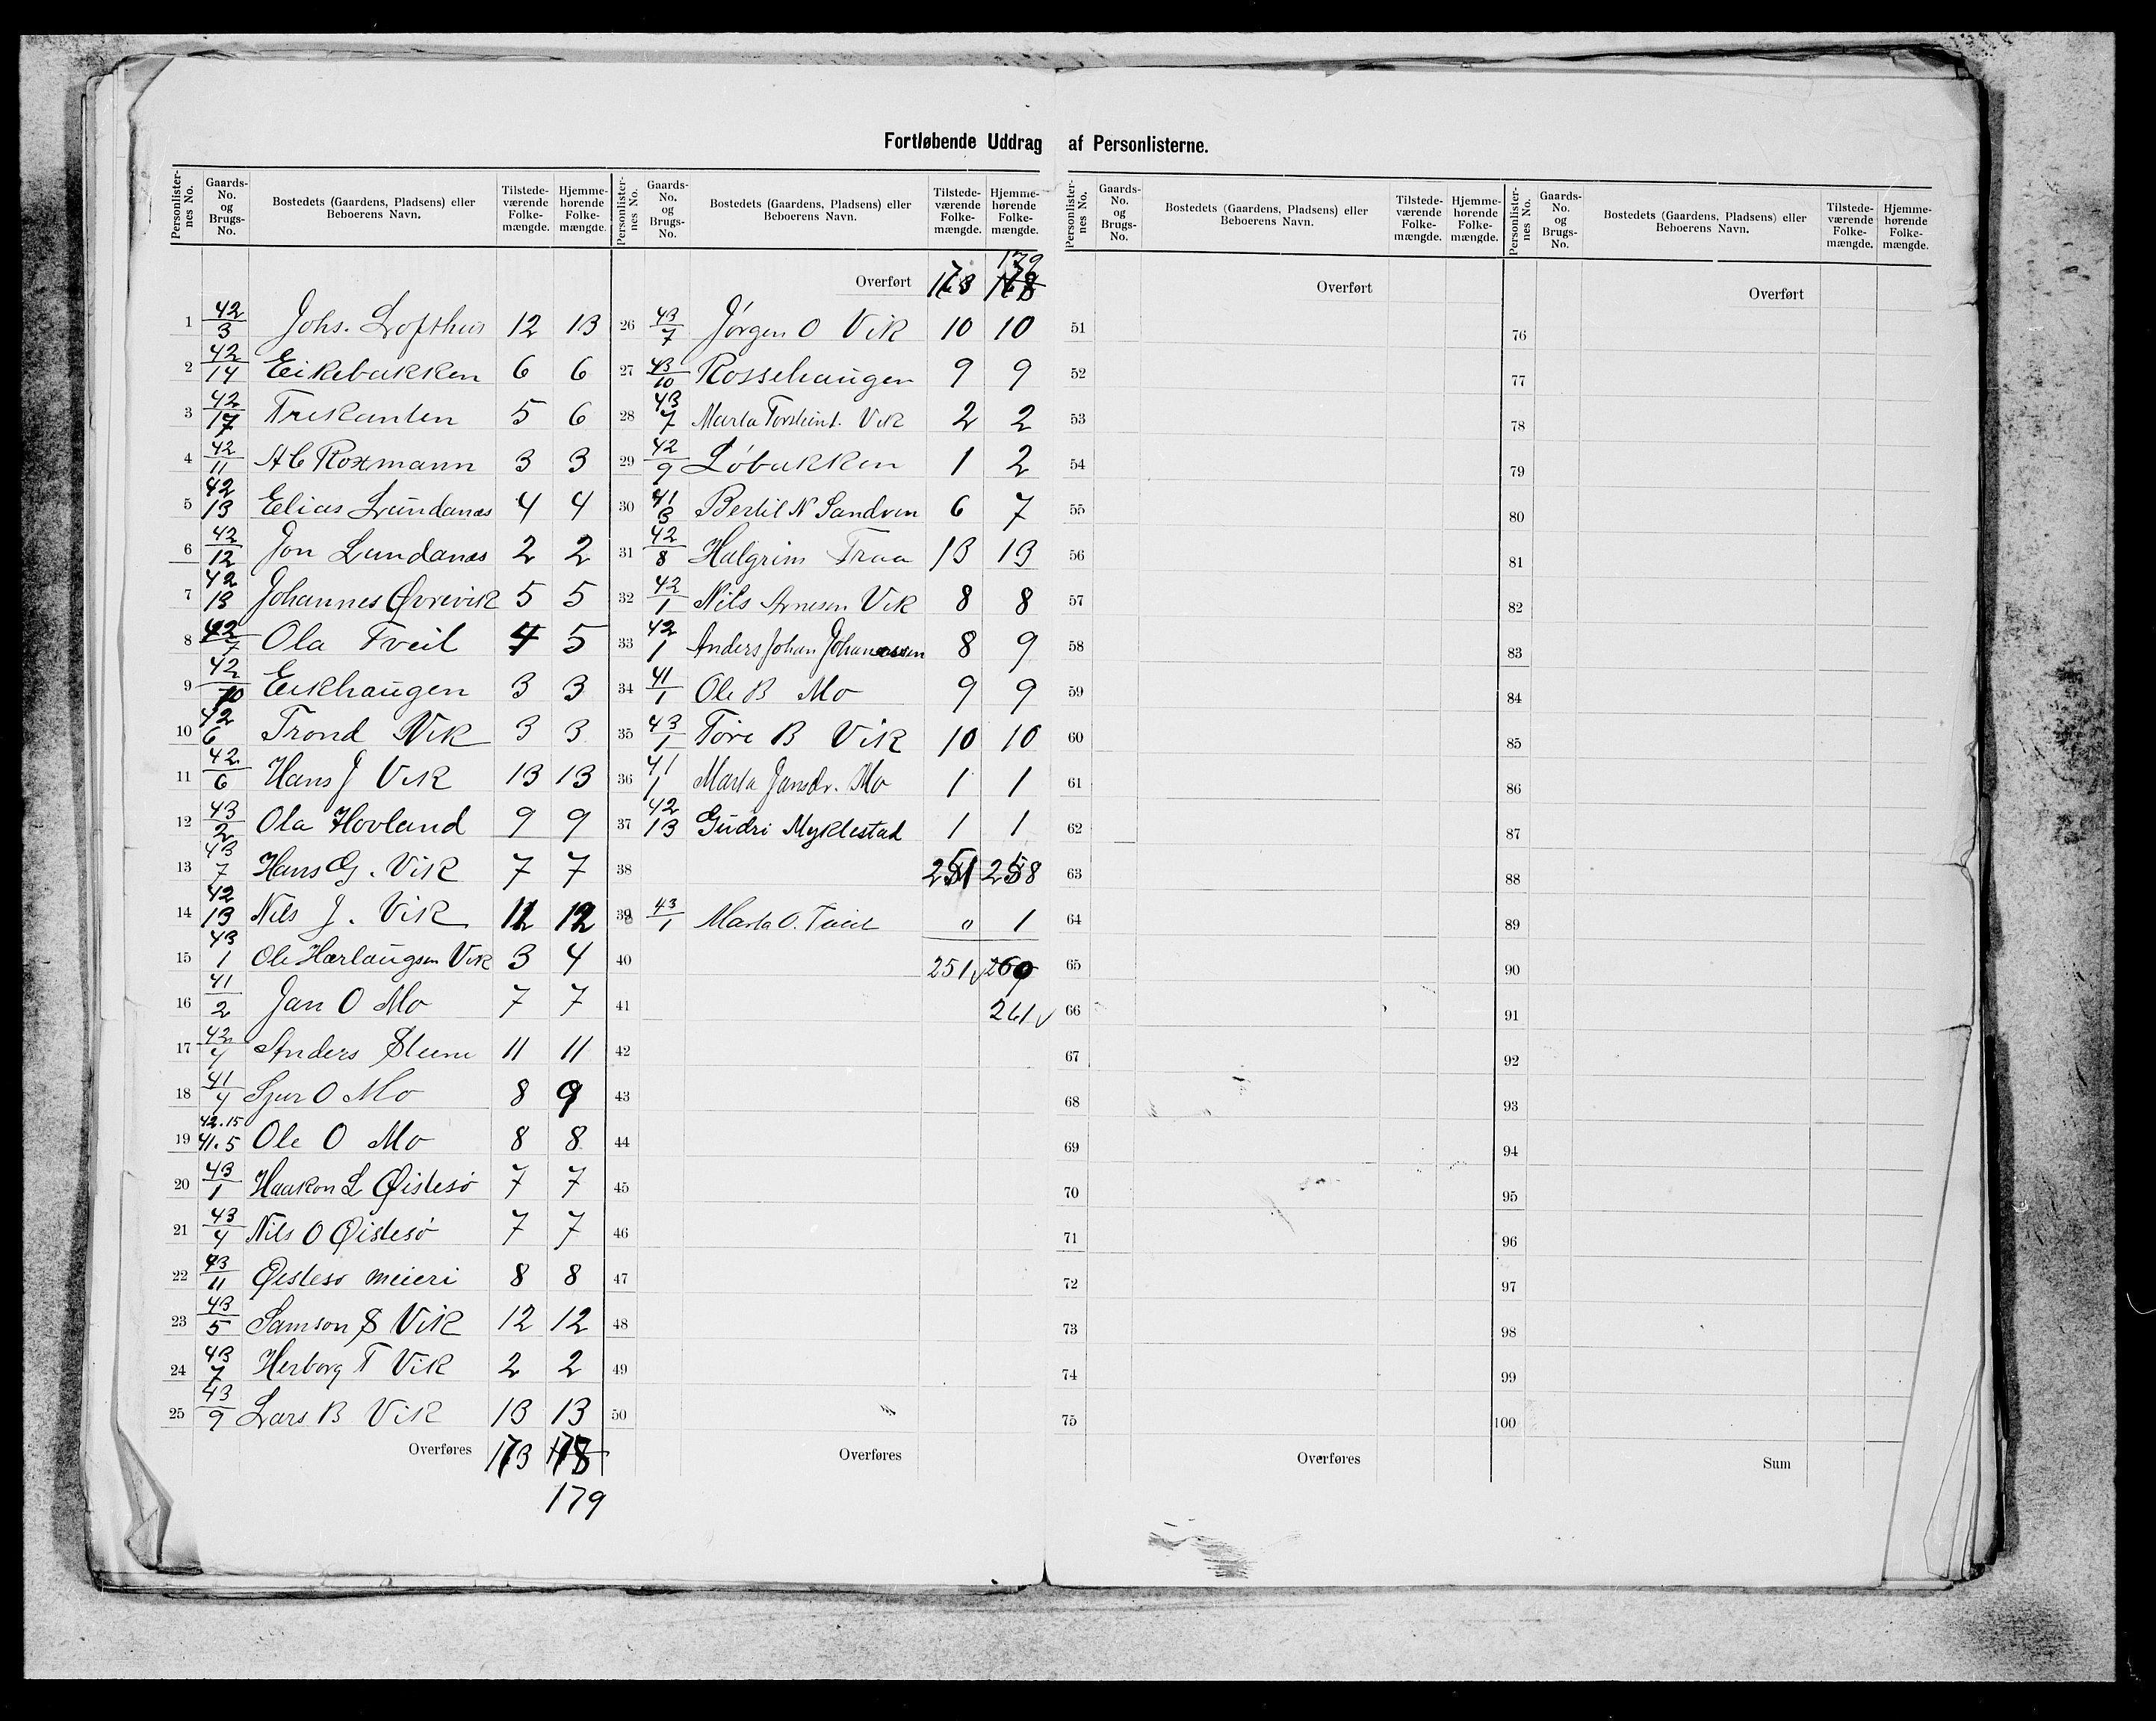 Fortløbende Uddrag af Personlisterne.
Personlister-nes No. | Gaards-No. og Brugs-No. | Bostedets (Gaardens, Pladsens) eller Beboerens Navn. | Tilstede-værende Folke-mængde. | Hjemme-hørende Folke-mængde.
1 42/3 Johs. Lofthus 12 13
2 42/14 Eikebakken 6 6
3 42/17 Trekanten 5 6
4 42/11 A C Roxmann 3 3
5 42/13 Elias Lundanæs 4 4
6 42/12 Jon Lundanæs 2 2
7 42/13 Johannes Øvrevik 5 5
8 42/7 Ola Tveit 4 5
9 42/10 Eikhaugen 3 3
10 42/6 Trond Vik 3 3
11 42/6 Hans J Vik 13 13
12 43/2 Ola Hovland 9 9
13 43/7 Hans G. Vik 7 7
14 42/13 Nils J. Vik 12 12
15 43/1 Ole Hærlaugsen Vik 3 4
16 41/2 Jan O Mo 7 7
17 42/4 Anders Steine 11 11
18 41/4 Sjur O Mo 8 9
19 42.15 41.5 Ole O Mo 8 8
20 43/1 Haakon L Øistesø 7 7
21 43/4 Nils O Øistesø 7 7
22 43/11 Øistesø meieri 8 8
23 43/5 Samson S Vik 12 12
24 43/7 Herborg T Vik 2 2
25 43/9 Lars B Vik 13 13
Overføres 173 178
179
Personlister-nes No. | Gaards-No. og Brugs-No. | Bostedets (Gaardens, Pladsens) eller Beboerens Navn. | Tilstede-værende Folke-mængde. | Hjemme-hørende Folke-mængde.
179
Overført 173 178
26 43/7 Jørgen O Vik 10 10
27 43/10 Rossehaugen 9 9
28 43/7 Marta Torsteinst. Vik 2 2
29 42/9 Løbakken 1 2
30 41/3 Bertil N Sandven 6 7
31 42/8 Halgrim Traa 13 13
32 42/1 Nils Arnesen Vik 8 8
33 42/1 Anders Johan Johannessen 8 9
34 41/1 Ole B Mo 9 9
35 43/1 Tore B Vik 10 10
36 41/1 Marta Jansdr. Mo 1 1
37 42/13 Gudri Myklestad 1 1
38 251 258
39 43/1 Marta O. Tveit 0 1
40 251 260
41 261
42
43
44
45
46
47
48
49
50
Overføres
Personlister-nes No. | Gaards-No. og Brugs-No. | Bostedets (Gaardens, Pladsens) eller Beboerens Navn. | Tilstede-værende Folke-mængde. | Hjemme-hørende Folke-mængde.
Overført
51
52
53
54
55
56
57
58
59
60
61
62
63
64
65
66
67
68
69
70
71
72
73
74
75
Overføres
Personlister-nes No. | Gaards-No. og Brugs-No. | Bostedets (Gaardens, Pladsens) eller Beboerens Navn. | Tilstede-værende Folke-mængde. | Hjemme-hørende Folke-mængde.
Overført
76
77
78
79
80
81
82
83
84
85
86
87
88
89
90
91
92
93
94
95
96
97
98
99
100
Sum